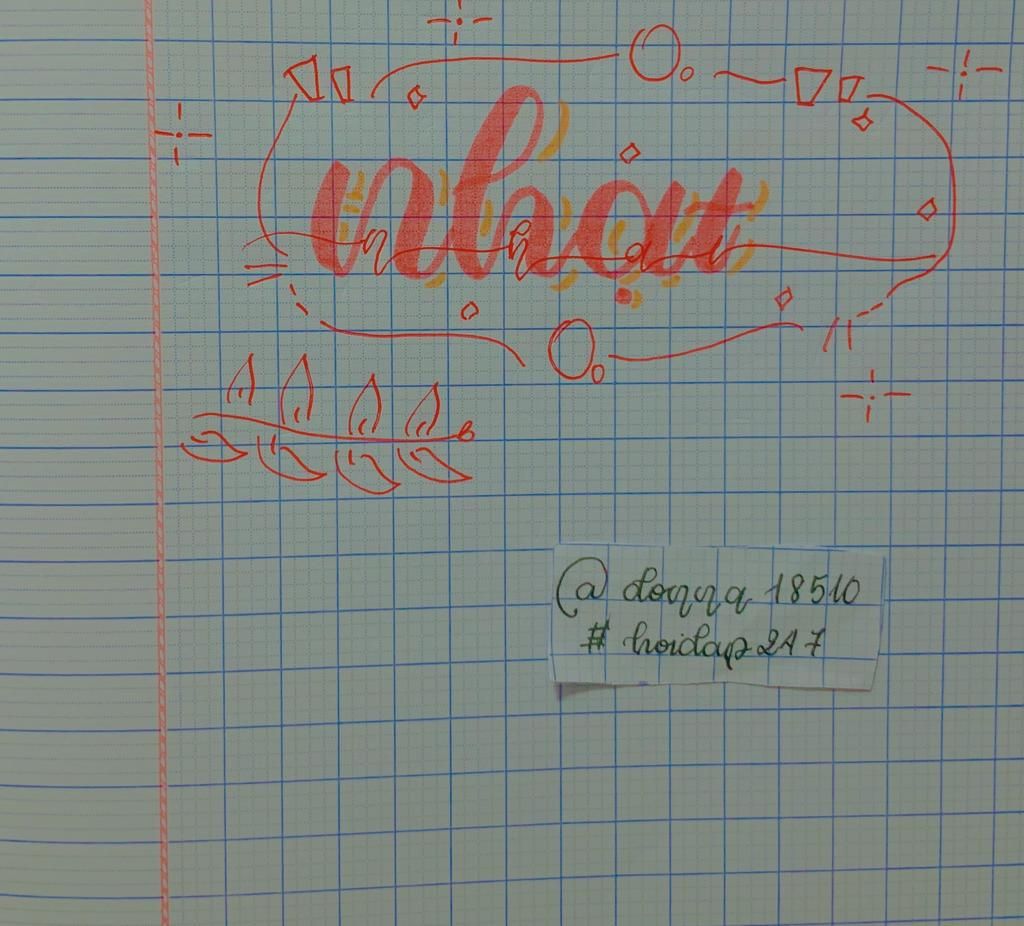 nhạt
n h a t
@ donna 18510
# hoidap247